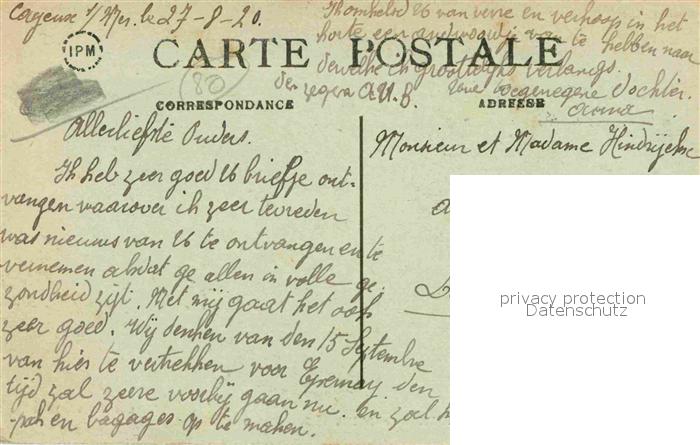 Cayeux s/Mer. le 27-8-20.
Ik omhelsd U van verre en verhoop in het
korte een andwoord van te hebben naar
dewelke ik grootelijks verlangs.
den zegen A.U.B. Uwe toegenegene Dochter.
Anna
IPM
CARTE POSTALE
(80)
CORRESPONDANCE
ADRESSE
Allerliefste Ouders.
Ik heb zeer goed U briefje ont-
vangen waarover ik zeer tevreden
was nieuws van U te ontvangen en te
vernemen alsdat ge allen in volle ge-
zondheid zijt. Met mij gaat het ook
zeer goed. Wij denken van den 15 September
van hier te vertrekken voor Epernay, den
tijd zal zeere voorbij gaan nu. en zal
pak en bagages op te maken.
Monsieur et Madame Hindryckx
privacy protection
Datenschutz